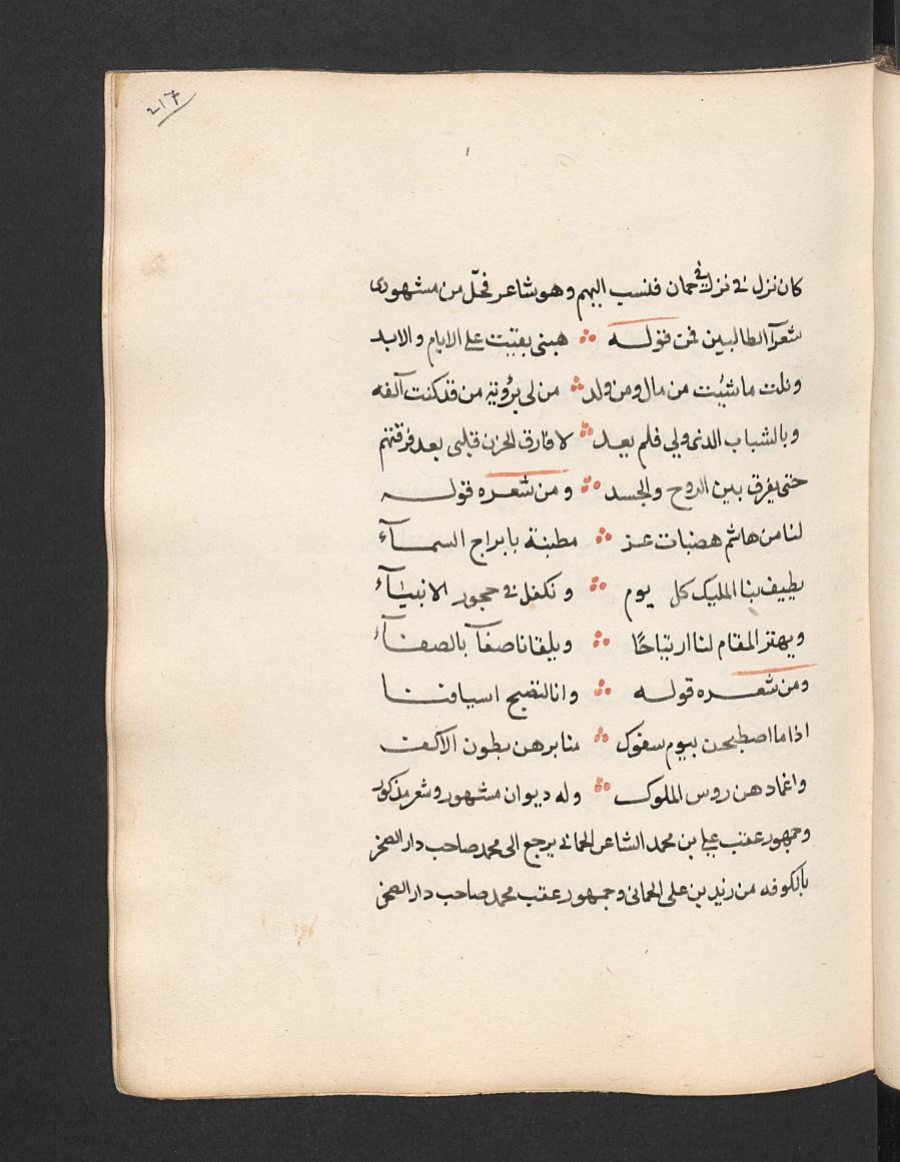 ٢١٧
كان نزل في نزل في حمان فنسب اليهم وهو شاعر فحل من مشهورى
شعرآ الطالبين فمن قوله ∴ هبنى بقيت على الايام والابد
ونلت ما شئت من مال ومن ولد ∴ من لى برؤية من قد كنت آلفه
وبالشباب الذى ولي فلم يعد ∴ لا فارق الحزن قلبى بعد فرقتهم
حتى يفرق بين الروح والجسد ∴ ومن شعره قوله
لنا من هاشم هضبات عز ∴ مطنبة بابراج السمآء
يطيف بنا المليك كل يوم ∴ ونكفل في حجور الانبيآء
ويهتز المقام لنا ارتياحًا ∴ ويلقانا صفآ بالصفآء
ومن شعره قوله ∴ وانا لتصبح اسيافنا
اذا ما اصطبحن بيوم سفوك ∴ منابرهن بطون الاكف
واغمادهن روس الملوك ∴ وله ديوان مشهور وشعر مذكور
وجمهور عقب علي بن محمد الشاعر الحماني يرجع الى محمد صاحب دار الصخر
بالكوفه من زيد بن على الحمانى وجمهور عقب محمد صاحب دار الصخر